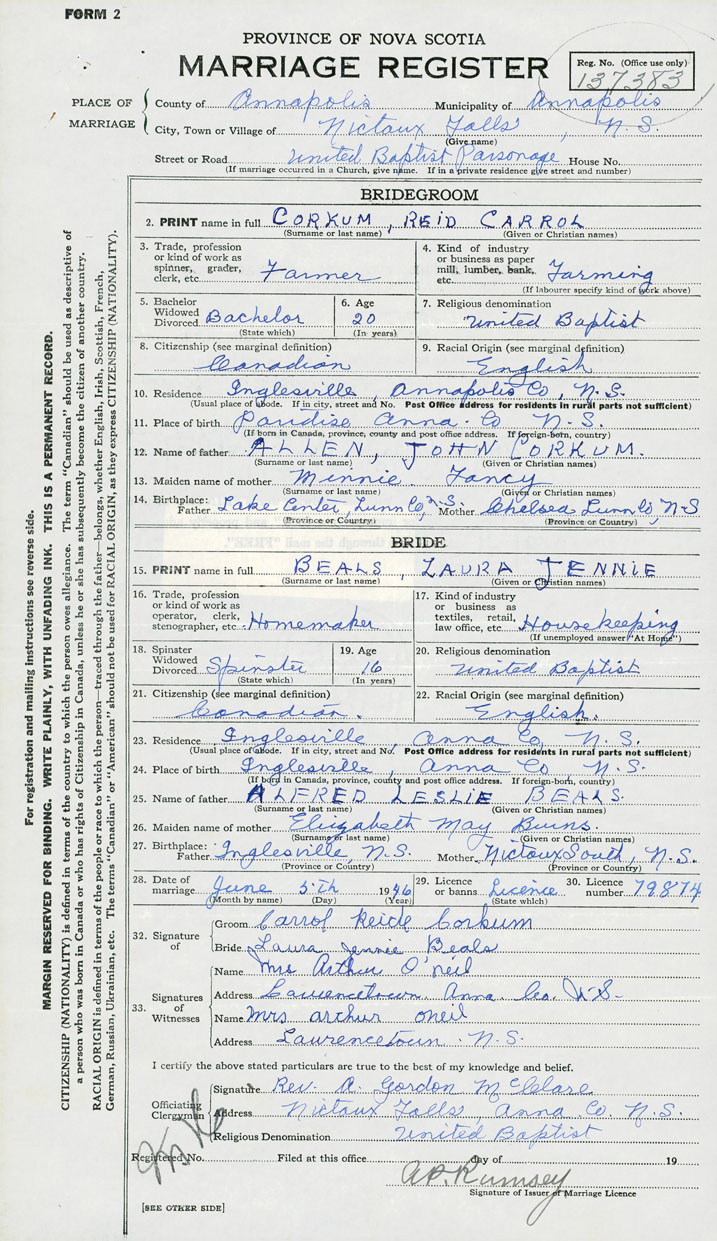 FORM 2
PROVINCE OF NOVA SCOTIA
MARRIAGE REGISTER
Reg. No. (Office use only)
137383
PLACE OF MARRIAGE
County of Annapolis Municipality of Annapolis
City, Town or Village of Nictaux Falls, N.S.
(Give name)
Street or Road United Baptist Parsonage House No.
(If marriage occurred in a Church, give name. If in a private residence give street and number)
BRIDEGROOM
2. PRINT name in full CORKUM, REID CARROL
(Surname or last name) (Given or Christian names)
3. Trade, profession or kind of work as spinner, grader, clerk, etc. Farmer
4. Kind of industry or business as paper mill, lumber, bank, etc. Farming
(If labourer specify kind of work above)
5. Bachelor Widowed Divorced Bachelor
(State which)
6. Age 20
(In years)
7. Religious denomination United Baptist
8. Citizenship (see marginal definition) Canadian
9. Racial Origin (see marginal definition) English
10. Residence Inglesville, Annapolis Co, N.S.
(Usual place of abode. If in city, street and No. Post Office address for residents in rural parts not sufficient)
11. Place of birth Paridise Anna. Co N.S.
(If born in Canada, province, county and post office address. If foreign-born, country)
12. Name of father ALLEN, JOHN CORKUM.
(Surname or last name) (Given or Christian names)
13. Maiden name of mother Minnie Fancy
(Surname or last name) (Given or Christian names)
14. Birthplace: Father Lake Center, Lunn Co, N.S. Mother Chelsea Lunn Co, N-S
(Province or Country) (Province or Country)
BRIDE
15. PRINT name in full BEALS, LAURA JENNIE
(Surname or last name) (Given or Christian names)
16. Trade, profession or kind of work as operator, clerk, stenographer, etc. Homemaker
17. Kind of industry or business as textiles, retail, law office, etc. Housekeeping
(If unemployed answer "At Home")
18. Spinster Widowed Divorced Spinster
(State which)
19. Age 16
(In years)
20. Religious denomination United Baptist
21. Citizenship (see marginal definition) Canadian.
22. Racial Origin (see marginal definition) English.
23. Residence Inglesville, Anna Co, N.S.
(Usual place of abode. If in city, street and No. Post Office address for residents in rural parts not sufficient)
24. Place of birth Inglesville, Anna Co N.S.
(If born in Canada, province, county and post office address. If foreign-born, country)
25. Name of father ALFRED LESLIE BEALS.
(Surname or last name) (Given or Christian names)
26. Maiden name of mother Elizabeth May Buins.
(Surname or last name) (Given or Christian names)
27. Birthplace: Father Inglesville, N.S. Mother Nictaux South, N.S.
(Province or Country) (Province or Country)
28. Date of marriage June 5th 1946
(Month by name) (Day) (Year)
29. Licence or banns Licence
(State which)
30. Licence number 79874
32. Signature of
Groom Carrol Reide Corkum
Bride Laura Jennie Beals
33. Signatures of Witnesses
Name Mrs Arthur O'neil
Address Lawrencetown. Anna. Co. N.S.
Name Mrs arthur oneil
Address Laurencetown. N.S.
I certify the above stated particulars are true to the best of my knowledge and belief.
Officiating Clergyman
Signature Rev. A. Gordon McClare
Address Nictaux Falls, Anna Co, N.S.
Religious Denomination United Baptist
Registered No. Filed at this office day of 19
Rumsey
Signature of Issuer of Marriage Licence
[SEE OTHER SIDE]
For registration and mailing instructions see reverse side.
MARGIN RESERVED FOR BINDING. WRITE PLAINLY, WITH UNFADING INK. THIS IS A PERMANENT RECORD.
CITIZENSHIP (NATIONALITY) is defined in terms of the country to which the person owes allegiance. The term "Canadian" should be used as descriptive of
a person who was born in Canada or who has rights of Citizenship in Canada, unless he or she has subsequently become the citizen of another country.
RACIAL ORIGIN is defined in terms of the people or race to which the person—traced through the father—belongs, whether English, Irish, Scottish, French,
German, Russian, Ukrainian, etc. The terms "Canadian" or "American" should not be used for RACIAL ORIGIN, as they express CITIZENSHIP (NATIONALITY).